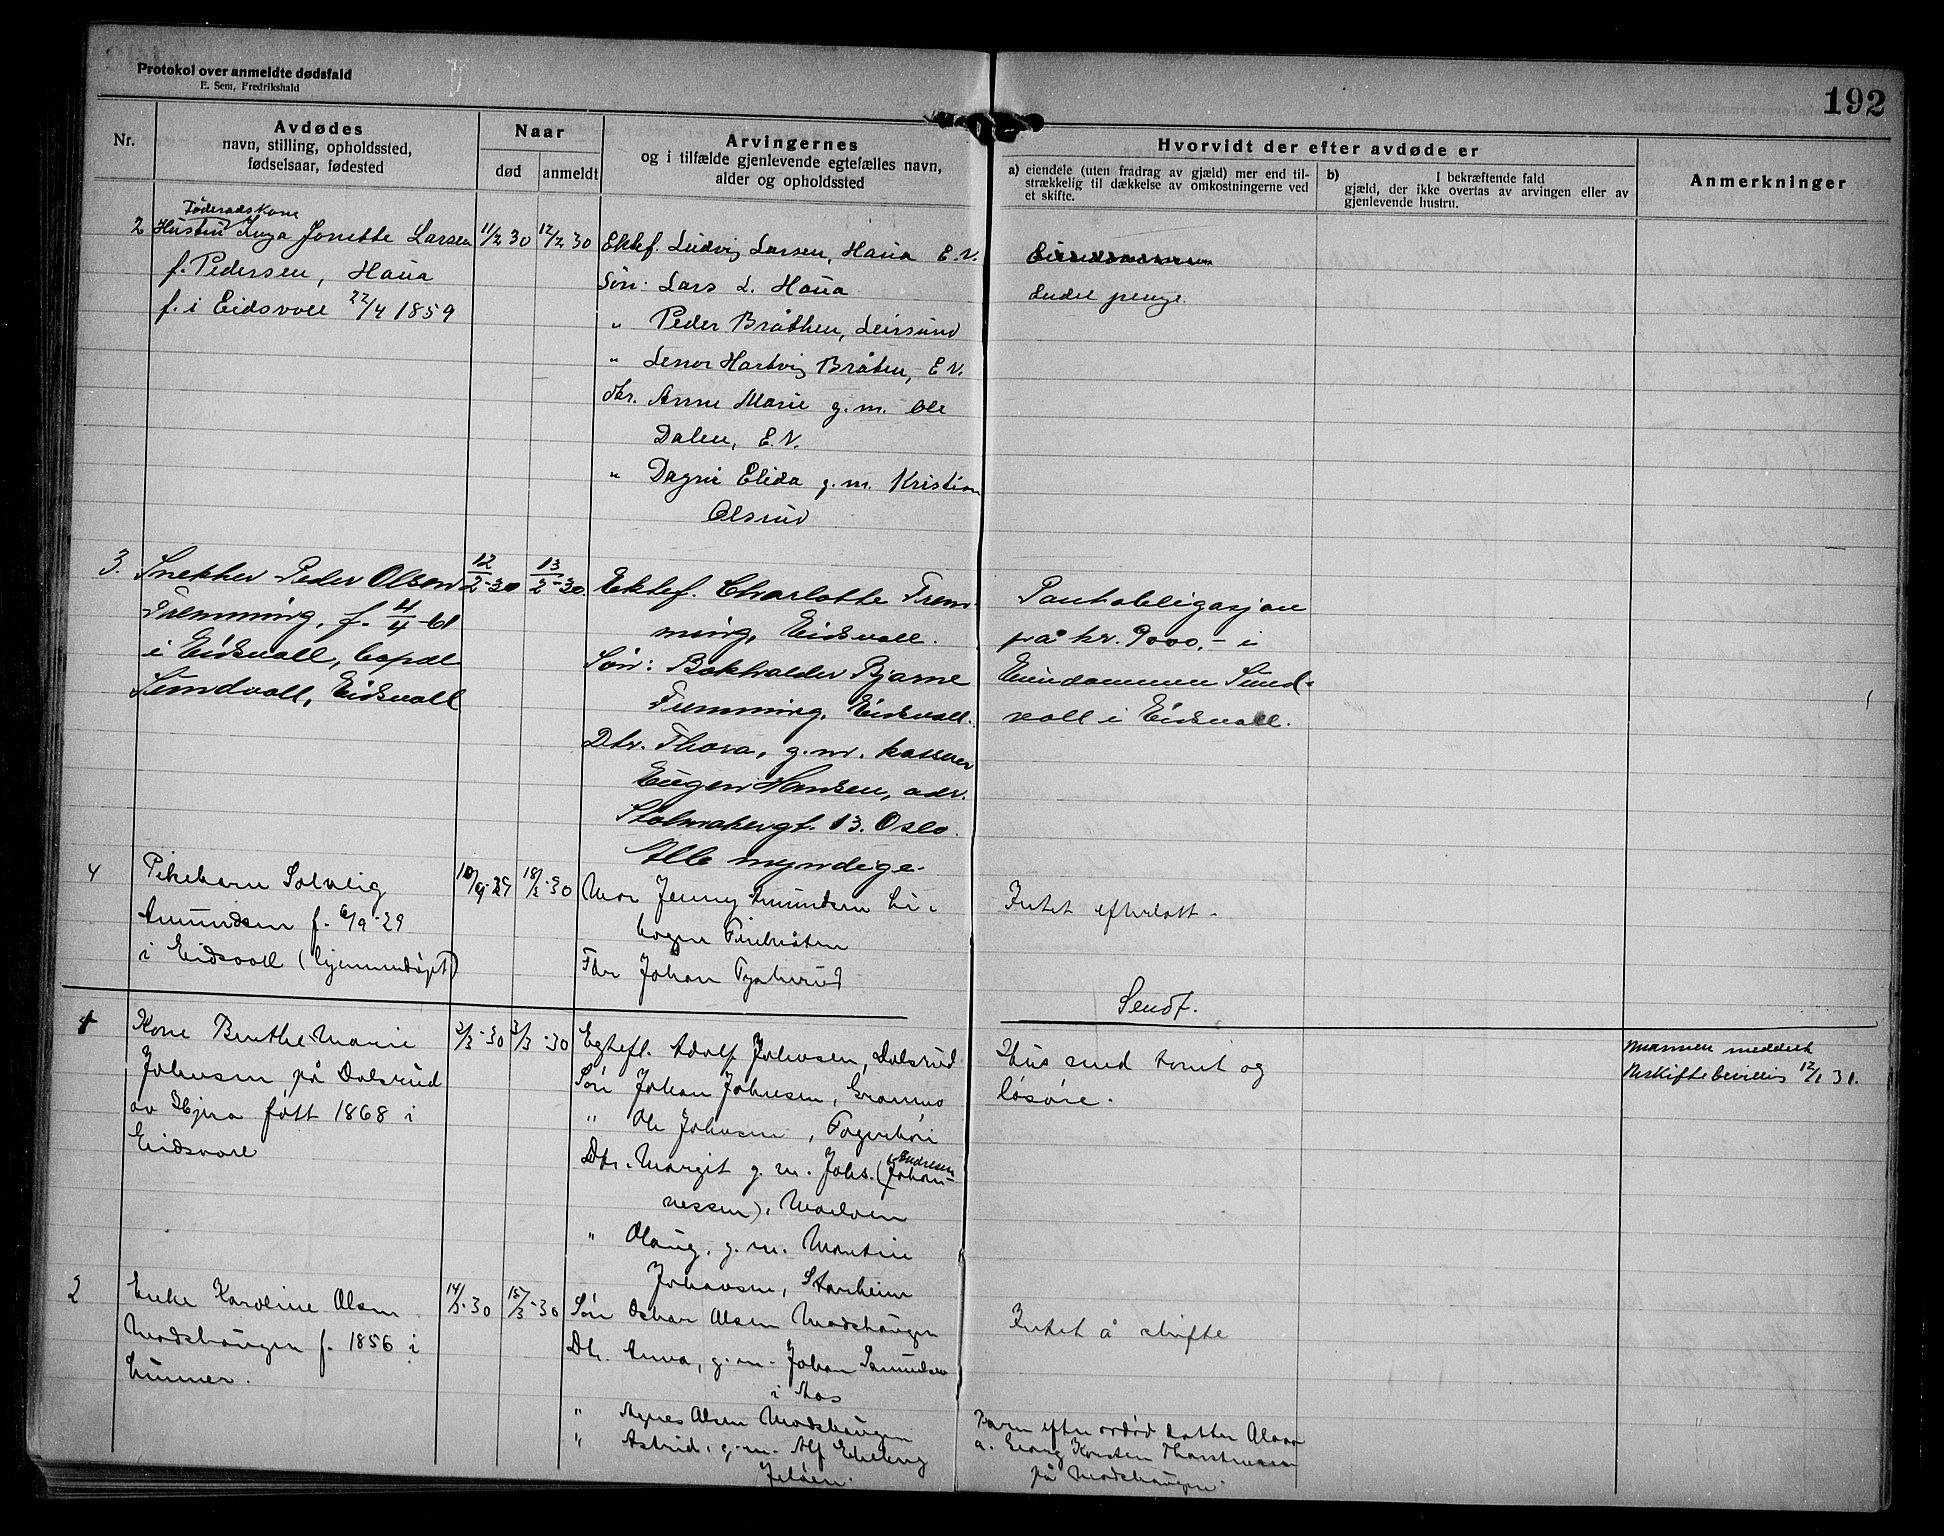 192
Protokol over anmeldte dødsfald
E. Sem, Fredrikshald
Nr.
Avdødes
navn, stilling, opholdssted,
fødselsaar, fødested
Naar
død
anmeldt
Arvingernes
og i tilfælde gjenlevende egtefælles navn,
alder og opholdssted
Hvorvidt der efter avdøde er
a) eiendele (uten fradrag av gjæld) mer end til-
strækkelig til dækkelse av omkostningerne ved
et skifte.
b) I bekræftende fald
gjæld, der ikke overtas av arvingen eller av
gjenlevende hustru.
Anmerkninger
2
Føderadskone
Hustru Inga Jonette Larsen
f. Pedersen, Haua
f. i Eidsvoll 22/4 1859
11/2 30
12/2 30
Ektef. Ludvig Larsen, Haua E.V.
Søn: Lars L. Haua
" Peder Bråthen, Leirsund
" Lenor Hartvig Bråten, E.V.
dtr. Anne Marie g.m. Ole
Dalen, E.V.
" Dagni Elida g.m. Kristian
Olsrud
Endel penge.
3.
Snekker Peder Olsen
Fremming, f. 4/4-61
i Eidsvoll, bopæl
Sundvoll, Eidsvoll
12/2-30
13/2-30
Ektef. Charlotte Frem-
ming, Eidsvoll.
Søn: Bokholder Bjarne
Fremming, Eidsvoll.
Dtr. Thora, g.m. kasserer
Eugen Hansen, adr.
Stolmakergt. 13. Oslo.
Alle myndige.
Pantobligasjon
på kr. 9000,- i
Eiendommen Sund-
voll i Eidsvoll.
4
Pikebarn Solveig
Amundsen f. 6/9-29
i Eidsvoll (hjemmedøpt)
10/9-29
18/2-30
Mor Jenny Amundsen
Far Johan
Intet efterlatt.
Sendt.
1
Kone Berthe Marie
Johnsen på Dolsrud
av fött 1868 i
Eidsvoll
2/3-30
3/3-30
Egtefl. Adolf Johnsen, Dolsrud
Søn Johan Johnsen,
" Ole Johnsen,
Dtr. Margit g.m. Johs. (Endresen
Johan-
nessen),
" Olaug, g.m. Martin
Johansen, Starheim
Hus med tomt og
løsøre.
Mannen meddelt
uskiftebevilling 12/1 31.
2
Enke Karoline Olsen
Modshaugen f. 1856 i
14/3-30
15/3-30
Søn Oskar Olsen Modshaugen
Dtr. Anna, g.m. Johan
i Aas
" Agnes Olsen Modshaugen
" Astrid, g.m. Alf
Jeløen.
Intet å skifte
Barn efter avdød datter
a. Georg Karsten
på Modshaugen.